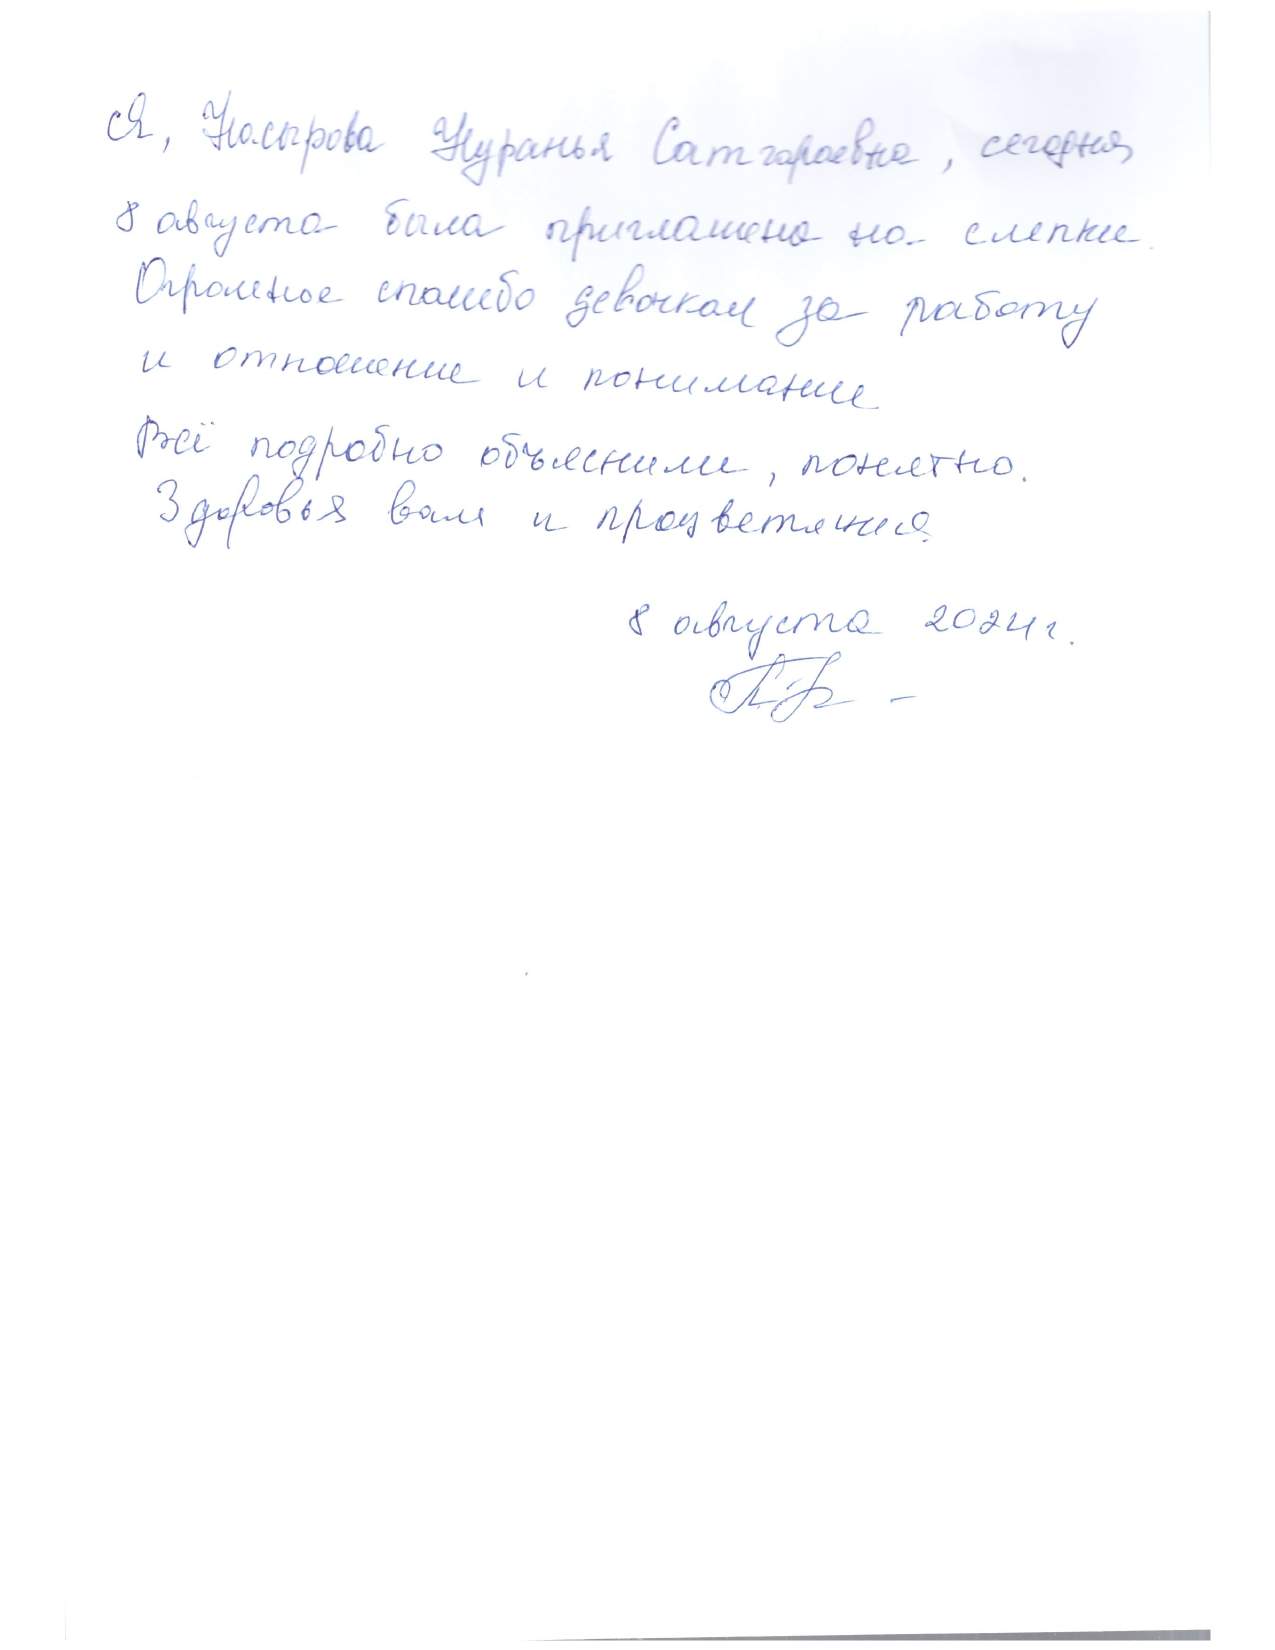 Я, Насырова Нуранья Сатгараевна, сегодня
8 августа была приглашена на слепки.
Огромное спасибо девочкам за работу
и отношение и понимание
Всё подробно объяснили, понятно.
Здоровья вам и процветания.
8 августа 2024 г.